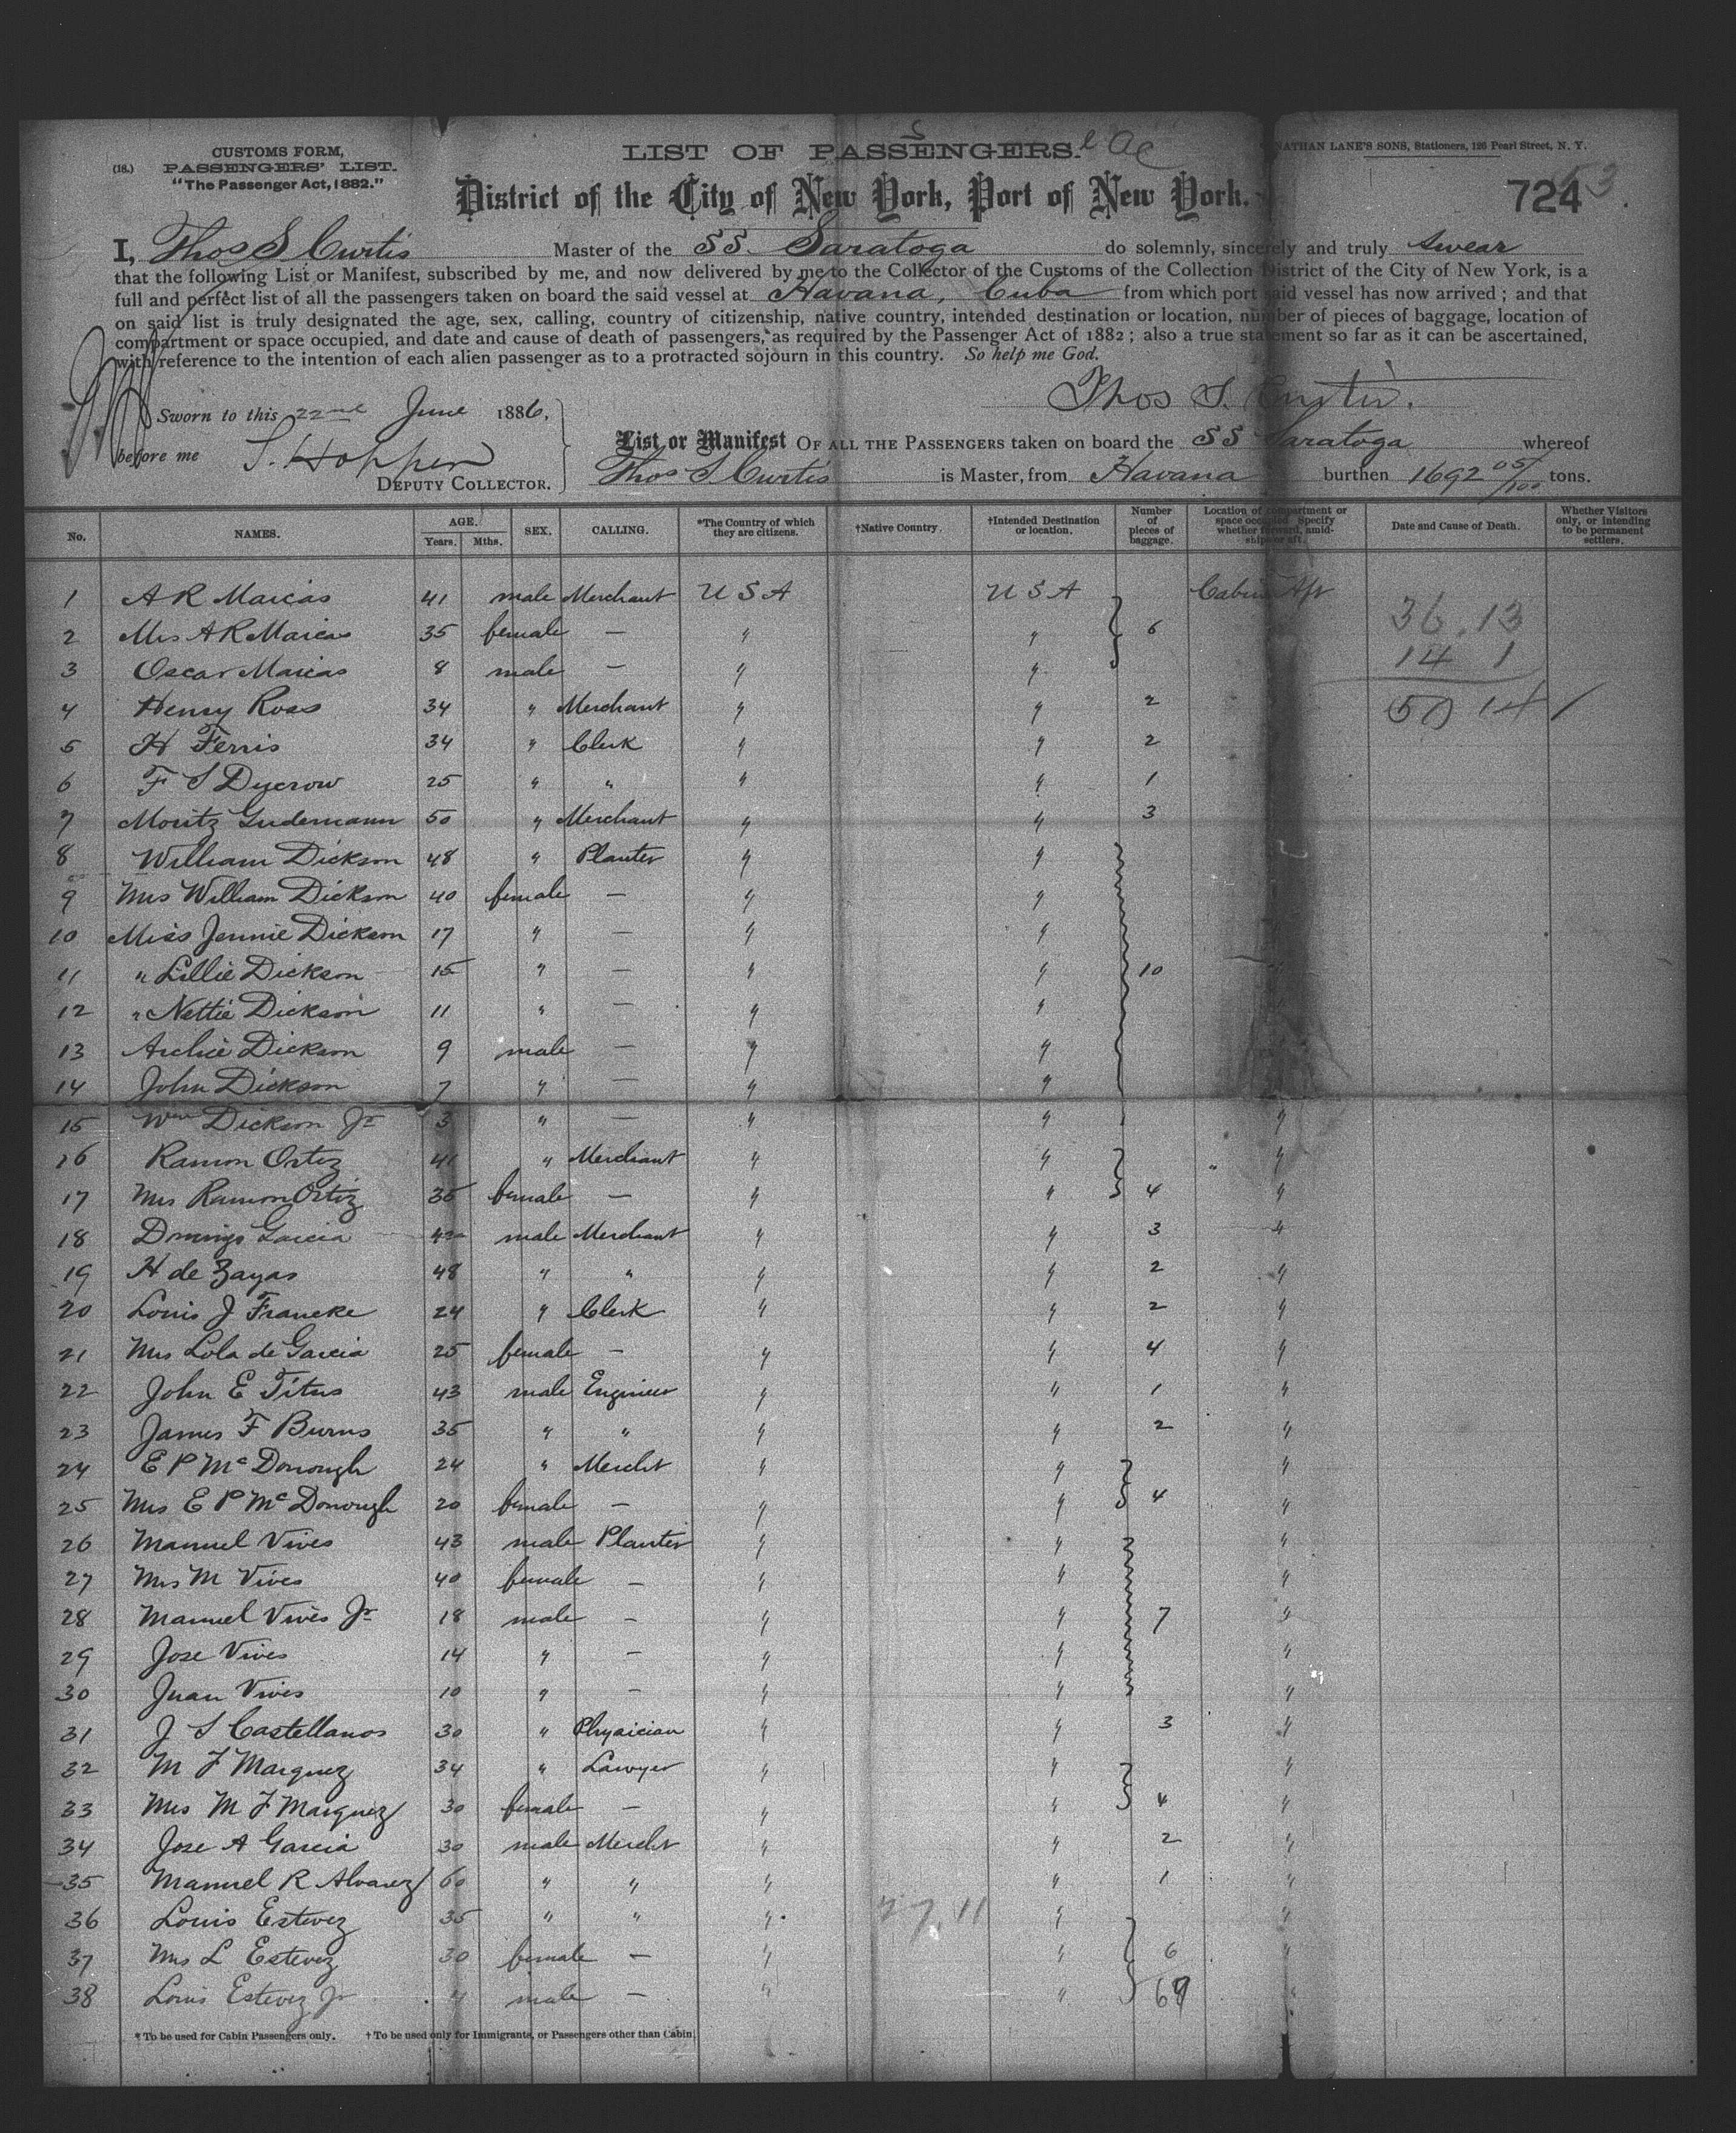 CUSTOMS FORM,
(18.) PASSENGERS' LIST.
"The Passenger Act, 1882."
LIST OF PASSENGERS.
NATHAN LANE'S SONS, Stationers, 126 Pearl Street, N. Y.
District of the City of New York, Port of New York.
724
I, Thos S Curtis Master of the SS. Saratoga do solemnly, sincerely and truly swear
that the following List or Manifest, subscribed by me, and now delivered by me to the Collector of the Customs of the Collection District of the City of New York, is a
full and perfect list of all the passengers taken on board the said vessel at Havana, Cuba from which port said vessel has now arrived; and that
on said list is truly designated the age, sex, calling, country of citizenship, native country, intended destination or location, number of pieces of baggage, location of
compartment or space occupied, and date and cause of death of passengers, as required by the Passenger Act of 1882; also a true statement so far as it can be ascertained,
with reference to the intention of each alien passenger as to a protracted sojourn in this country. So help me God.
Thos S. Curtis.
Sworn to this 22nd June 1886,
before me S. Hopper
DEPUTY COLLECTOR.
List or Manifest OF ALL THE PASSENGERS taken on board the SS Saratoga whereof
Thos S Curtis is Master, from Havana burthen 1692 05/100 tons.
No. NAMES. AGE. Years. Mths. SEX. CALLING. *The Country of which they are citizens. †Native Country. †Intended Destination or location. Number of pieces of baggage. Location of compartment or space occupied. Specify whether forward, amidships or aft. Date and Cause of Death. Whether Visitors only, or intending to be permanent settlers.
1 A R Marcas 41 male Merchant U S A U S A Cabin Aft
2 Mrs A R Marcas 35 female — " " 6
3 Oscar Marcas 8 male — " "
4 Henry Ross 34 " Merchant " " 2
5 H Ferris 34 " Clerk " " 2
6 F S Dycrow 25 " " " " 1
7 Moritz Gudemann 50 " Merchant " " 3
8 William Dickson 48 " Planter " "
9 Mrs William Dickson 40 female — " "
10 Miss Jennie Dickson 17 " — " "
11 " Lillie Dickson 15 " — " " 10
12 " Nettie Dickson 11 " — " "
13 Archie Dickson 9 male — " "
14 John Dickson 7 " — " "
15 Wm Dickson Jr 3 " — " " "
16 Ramon Ortiz 41 " Merchant " " "
17 Mrs Ramon Ortiz 35 female — " " 4 "
18 Domingo Garcia male Merchant " " 3 "
19 H de Zayas 48 " " " " 2 "
20 Louis J Francke 24 " Clerk " " 2 "
21 Mrs Lola de Garcia 25 female — " " 4 "
22 John E Titus 43 male Engineer " " 1 "
23 James F Burns 35 " " " " 2 "
24 E P McDonough 24 " Mercht " " "
25 Mrs E P McDonough 20 female — " " 4 "
26 Manuel Vives 43 male Planter " " "
27 Mrs M Vives 40 female — " " "
28 Manuel Vives Jr 18 male — " " 7 "
29 Jose Vives 14 " — " " "
30 Juan Vives 10 " — " " "
31 J S Castellanos 30 " Physician " " 3 "
32 M F Marquez 34 " Lawyer " " "
33 Mrs M F Marquez 30 female — " " 4 "
34 Jose A Garcia 30 male Mercht " " 2 "
35 Manuel R Alvarez 60 " " " " 1 "
36 Louis Estevez 35 " " " " "
37 Mrs L Estevez 30 female — " " 6 "
38 Louis Estevez Jr male — " " 69 "
36.13
14 1
50 14
* To be used for Cabin Passengers only. † To be used only for Immigrants, or Passengers other than Cabin.